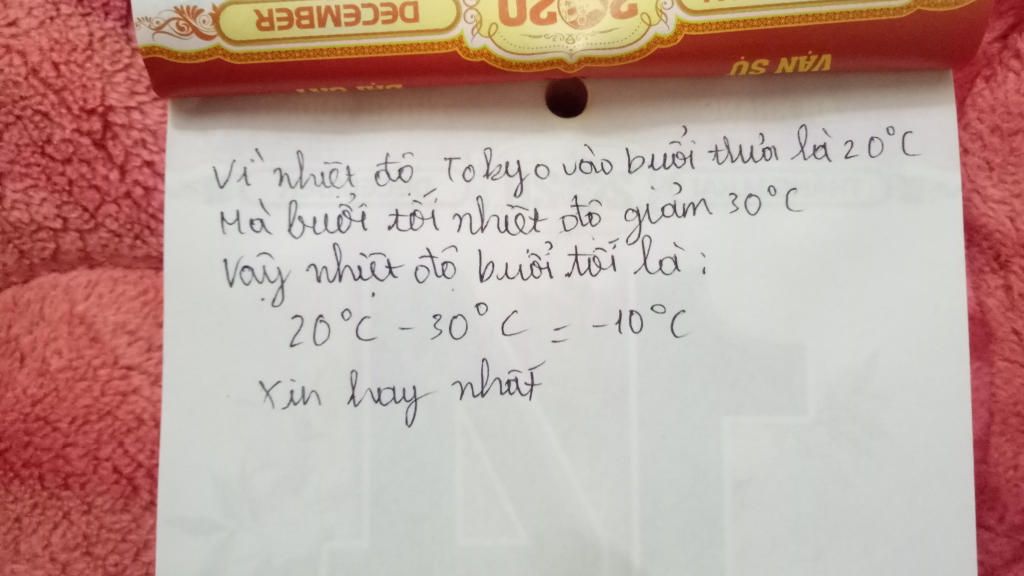 DECEMBER
2020
VẠN SỰ
Vì nhiệt độ Tokyo vào buổi thưa là 20°C
Mà buổi tối nhiệt độ giảm 30°C
Vậy nhiệt độ buổi tối là:
20°C - 30°C = -10°C
Xin hay nhất